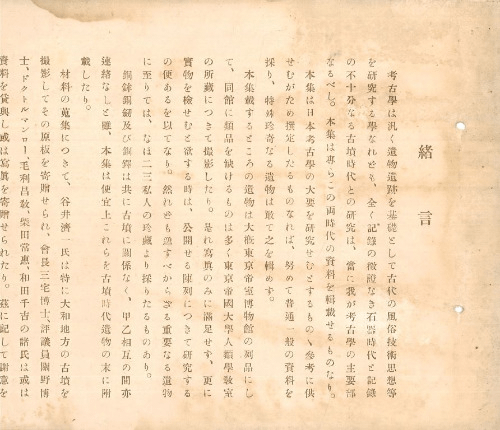 緒言
考古學は汎く遺物遺跡を基礎として古代の風俗技術思想等
を研究する學なれども、全く記錄の徵證なき石器時代と記錄
の不十分なる古墳時代との研究は、當に我が考古學の主要部
なるべし。本集は専らこの兩時代の資料を輯載せるものなり。
本集は日本考古學の大要を研究せむとするもの丶參考に供
せむがため撰定したるものなれば、努めて普通一般の資料を
採り、特殊珍奇なる遺物は敢て之を輯めず。
本集載するところの遺物は大槪東京帝室博物館の列品にし
て、同館に類品を缺けるものは多く東京帝國大學人類學敎室
の所藏につきて撮影したり。是れ寫眞のみに滿足せず、更に
實物を檢せむと欲する時は、公開せる陳列につきて研究する
の便あるを以てなり。然れども逸すべからざる重要なる遺物
に至りては、なほ二三私人の珍藏より採りたるものあり。
銅鉾銅劒及び銅鐸は共に古墳に關係なく、甲乙相互の間亦
連絡なしと雖、本集は便宜上これらを古墳時代遺物の末に附
載したり。
材料の蒐集につきて、谷井濟一氏は特に大和地方の古墳を
撮影してその原板を寄贈せられ、會長三宅博士、評議員關野博
士、ドクトルマンロー、毛利昌敎、柴田常惠、和田千吉の諸氏は或は
資料を貸與し或は寫眞を寄贈せられたり。茲に記して謝意を